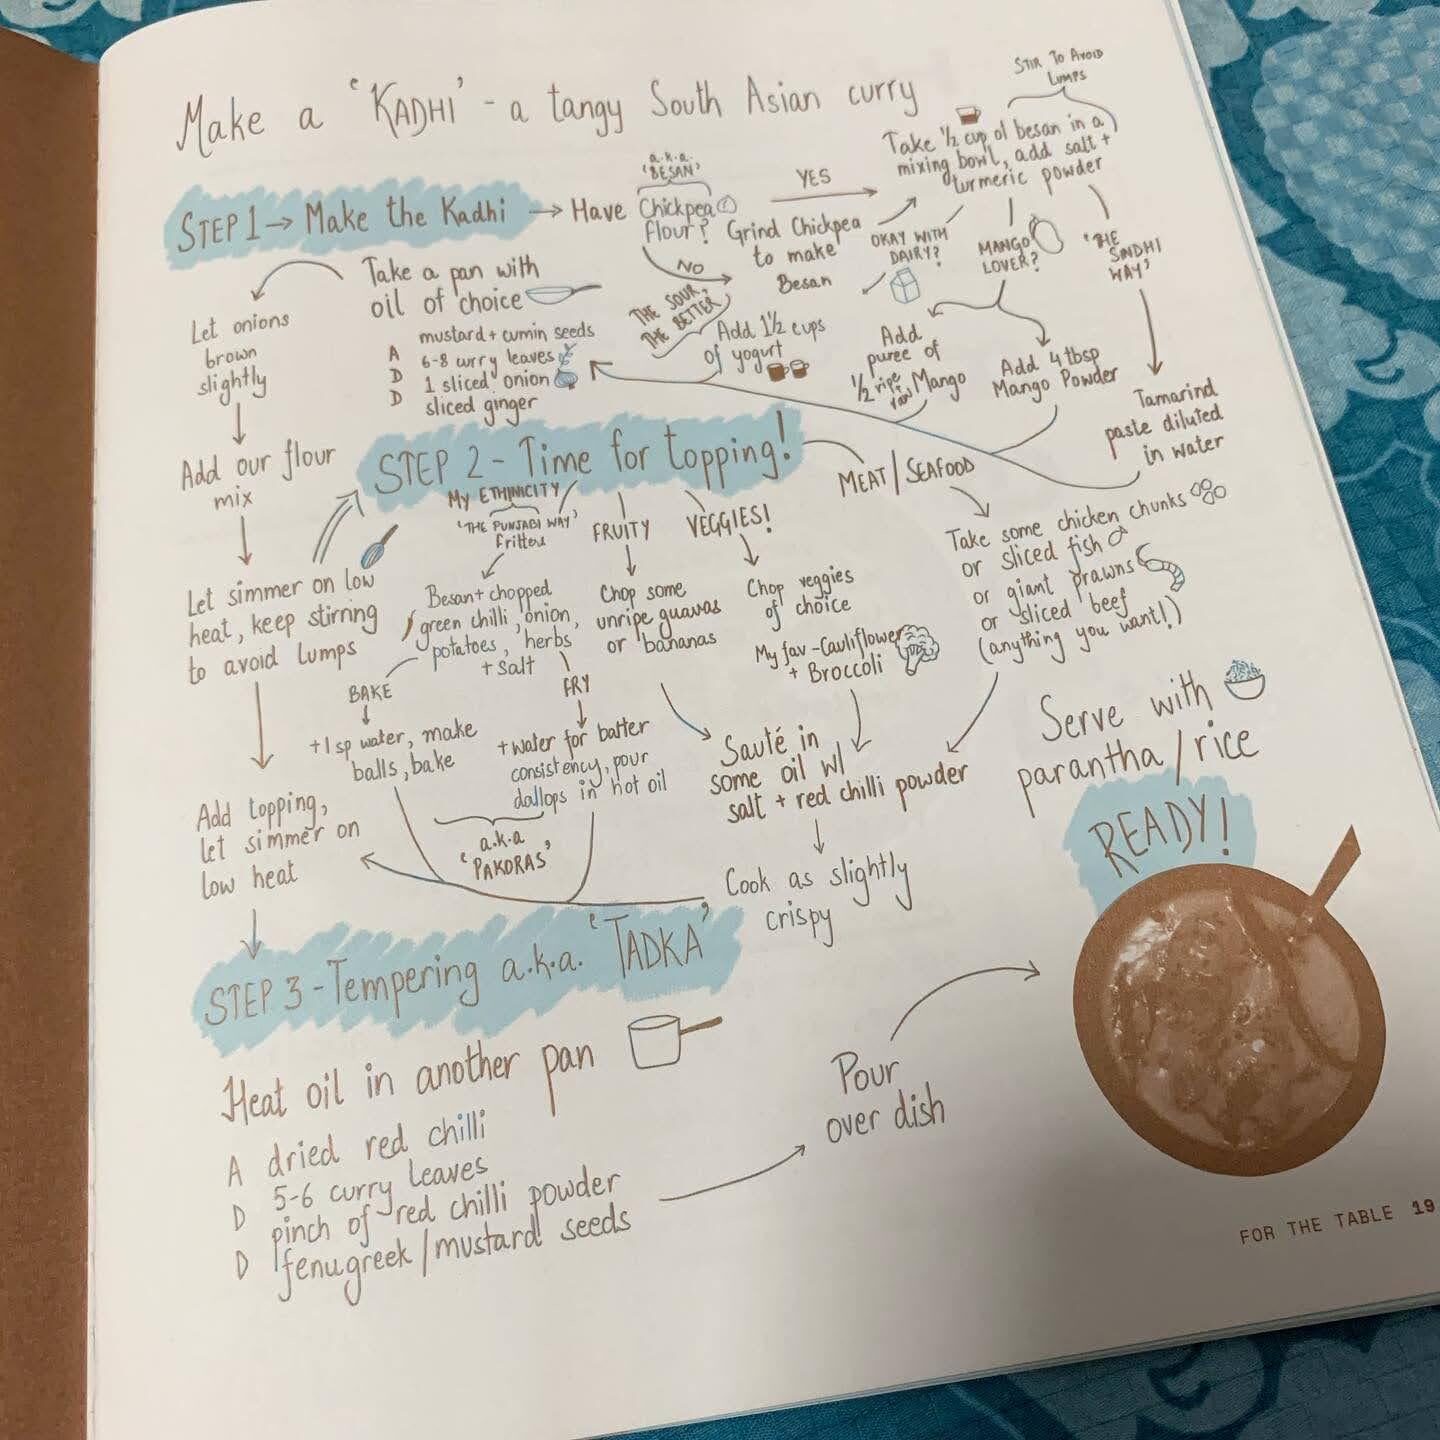 Make a 'KADHI' - a tangy South Asian curry
STEP 1 → Make the Kadhi
→ Have
a.k.a.
'BESAN'
Chickpea
flour?
YES
NO
Grind Chickpea
to make
Besan
STIR TO AVOID
LUMPS
Take 1/2 cup of besan in a
mixing bowl, add salt +
turmeric powder
OKAY WITH
DAIRY?
MANGO
LOVER?
'THE
SINDHI
WAY'
THE SOUR,
THE BETTER
Add 1 1/2 cups
of yogurt
Add
puree of
1/2 ripe
raw Mango
Add 4 tbsp
Mango Powder
Tamarind
paste diluted
in water
Take a pan with
oil of choice
A
D
D
mustard + cumin seeds
6-8 curry leaves
1 sliced onion
sliced ginger
Let onions
brown
slightly
Add our flour
mix
Let simmer on low
heat, keep stirring
to avoid lumps
Add topping,
let simmer on
low heat
STEP 2 - Time for topping!
MY ETHINICITY
'THE PUNJABI WAY'
fritters
Besan + chopped
green chilli, onion,
potatoes, herbs
+ salt
BAKE
+1 sp water, make
balls, bake
FRY
+ water for batter
consistency, pour
dallops in hot oil
a.k.a
'PAKORAS'
FRUITY
Chop some
unripe guavas
or bananas
VEGGIES!
Chop veggies
of choice
My fav - Cauliflower
+ Broccoli
MEAT / SEAFOOD
Take some chicken chunks
or sliced fish
or giant prawns
or sliced beef
(anything you want!)
Sauté in
some oil w/
salt + red chilli powder
Cook as slightly
crispy
STEP 3 - Tempering a.k.a. 'TADKA'
Heat oil in another pan
A
D
D
dried red chilli
5-6 curry leaves
pinch of red chilli powder
fenugreek / mustard seeds
Pour
over dish
Serve with
parantha / rice
READY!
FOR THE TABLE 19